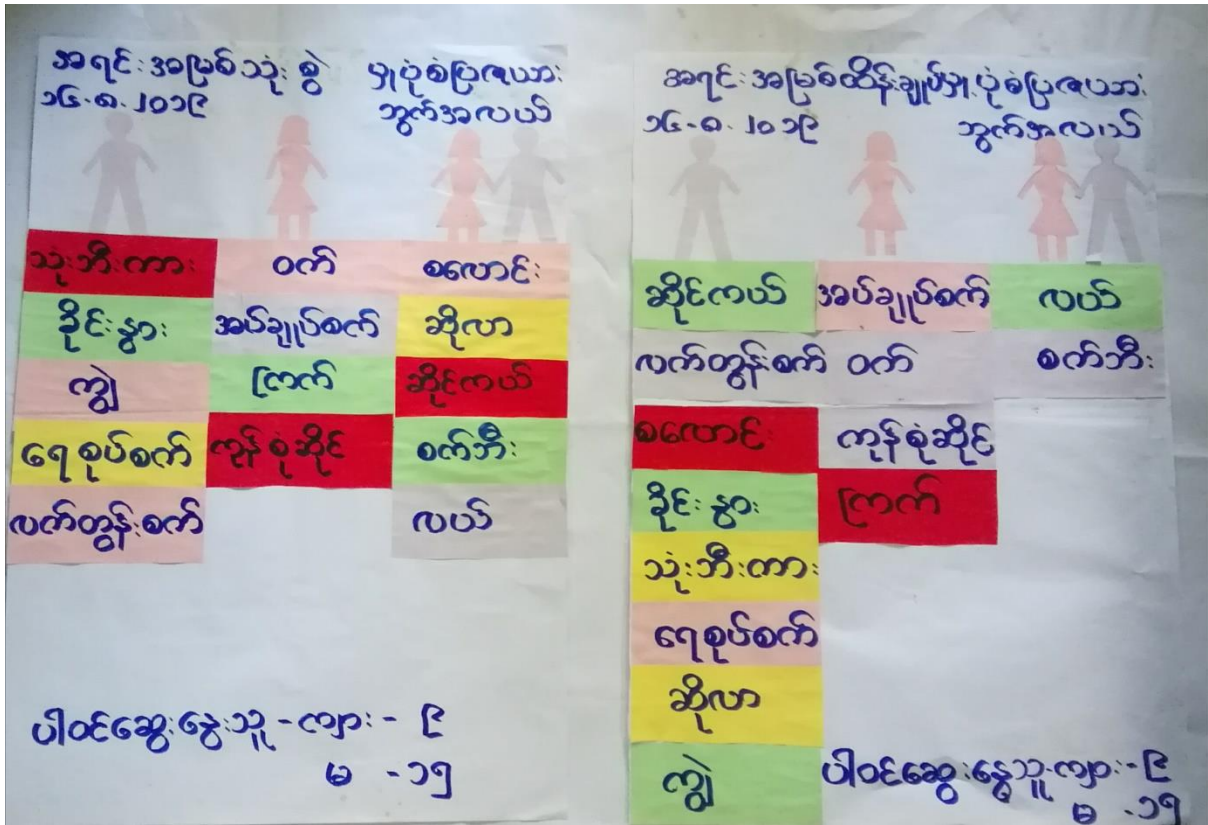 အရင်းအမြစ်သုံးစွဲ မှုပုံစံပြဇယား
၁၄.၈.၂၀၁၉ ဘွက်အလယ်
သုံးဘီးကား ဝက် စလောင်း
ခိုင်းနွား အပ်ချုပ်စက် ဆိုလာ
ကျွဲ ကြက် ဆိုင်ကယ်
ရေစုပ်စက် ကုန်စုံဆိုင် စက်ဘီး
လက်တွန်းစက် လယ်
ပါဝင်ဆွေးနွေးသူ - ကျား - ၉
မ - ၁၅
အရင်းအမြစ်ထိန်းချုပ်မှု ပုံစံပြဇယား
၁၄.၈.၂၀၁၉ ဘွက်အလယ်
ဆိုင်ကယ် အပ်ချုပ်စက် လယ်
လက်တွန်းစက် ဝက် စက်ဘီး
စလောင်း ကုန်စုံဆိုင်
ခိုင်းနွား ကြက်
သုံးဘီးကား
ရေစုပ်စက်
ဆိုလာ
ကျွဲ
ပါဝင်ဆွေးနွေသူ-ကျား-၉
မ - ၁၅